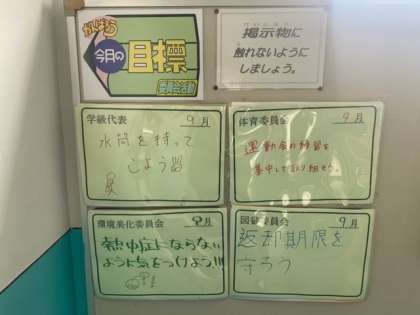 がんばろう
今月の
目標
委員会活動
掲示物に
触れないように
しましょう。
学級代表 9月
水筒を持って
こよう
体育委員会 9月
運動会の練習を
集中して取り組もう。
環境美化委員会 9月
熱中症にならない
ように気をつけよう!!!
図書委員会 9月
返却期限を
守ろう